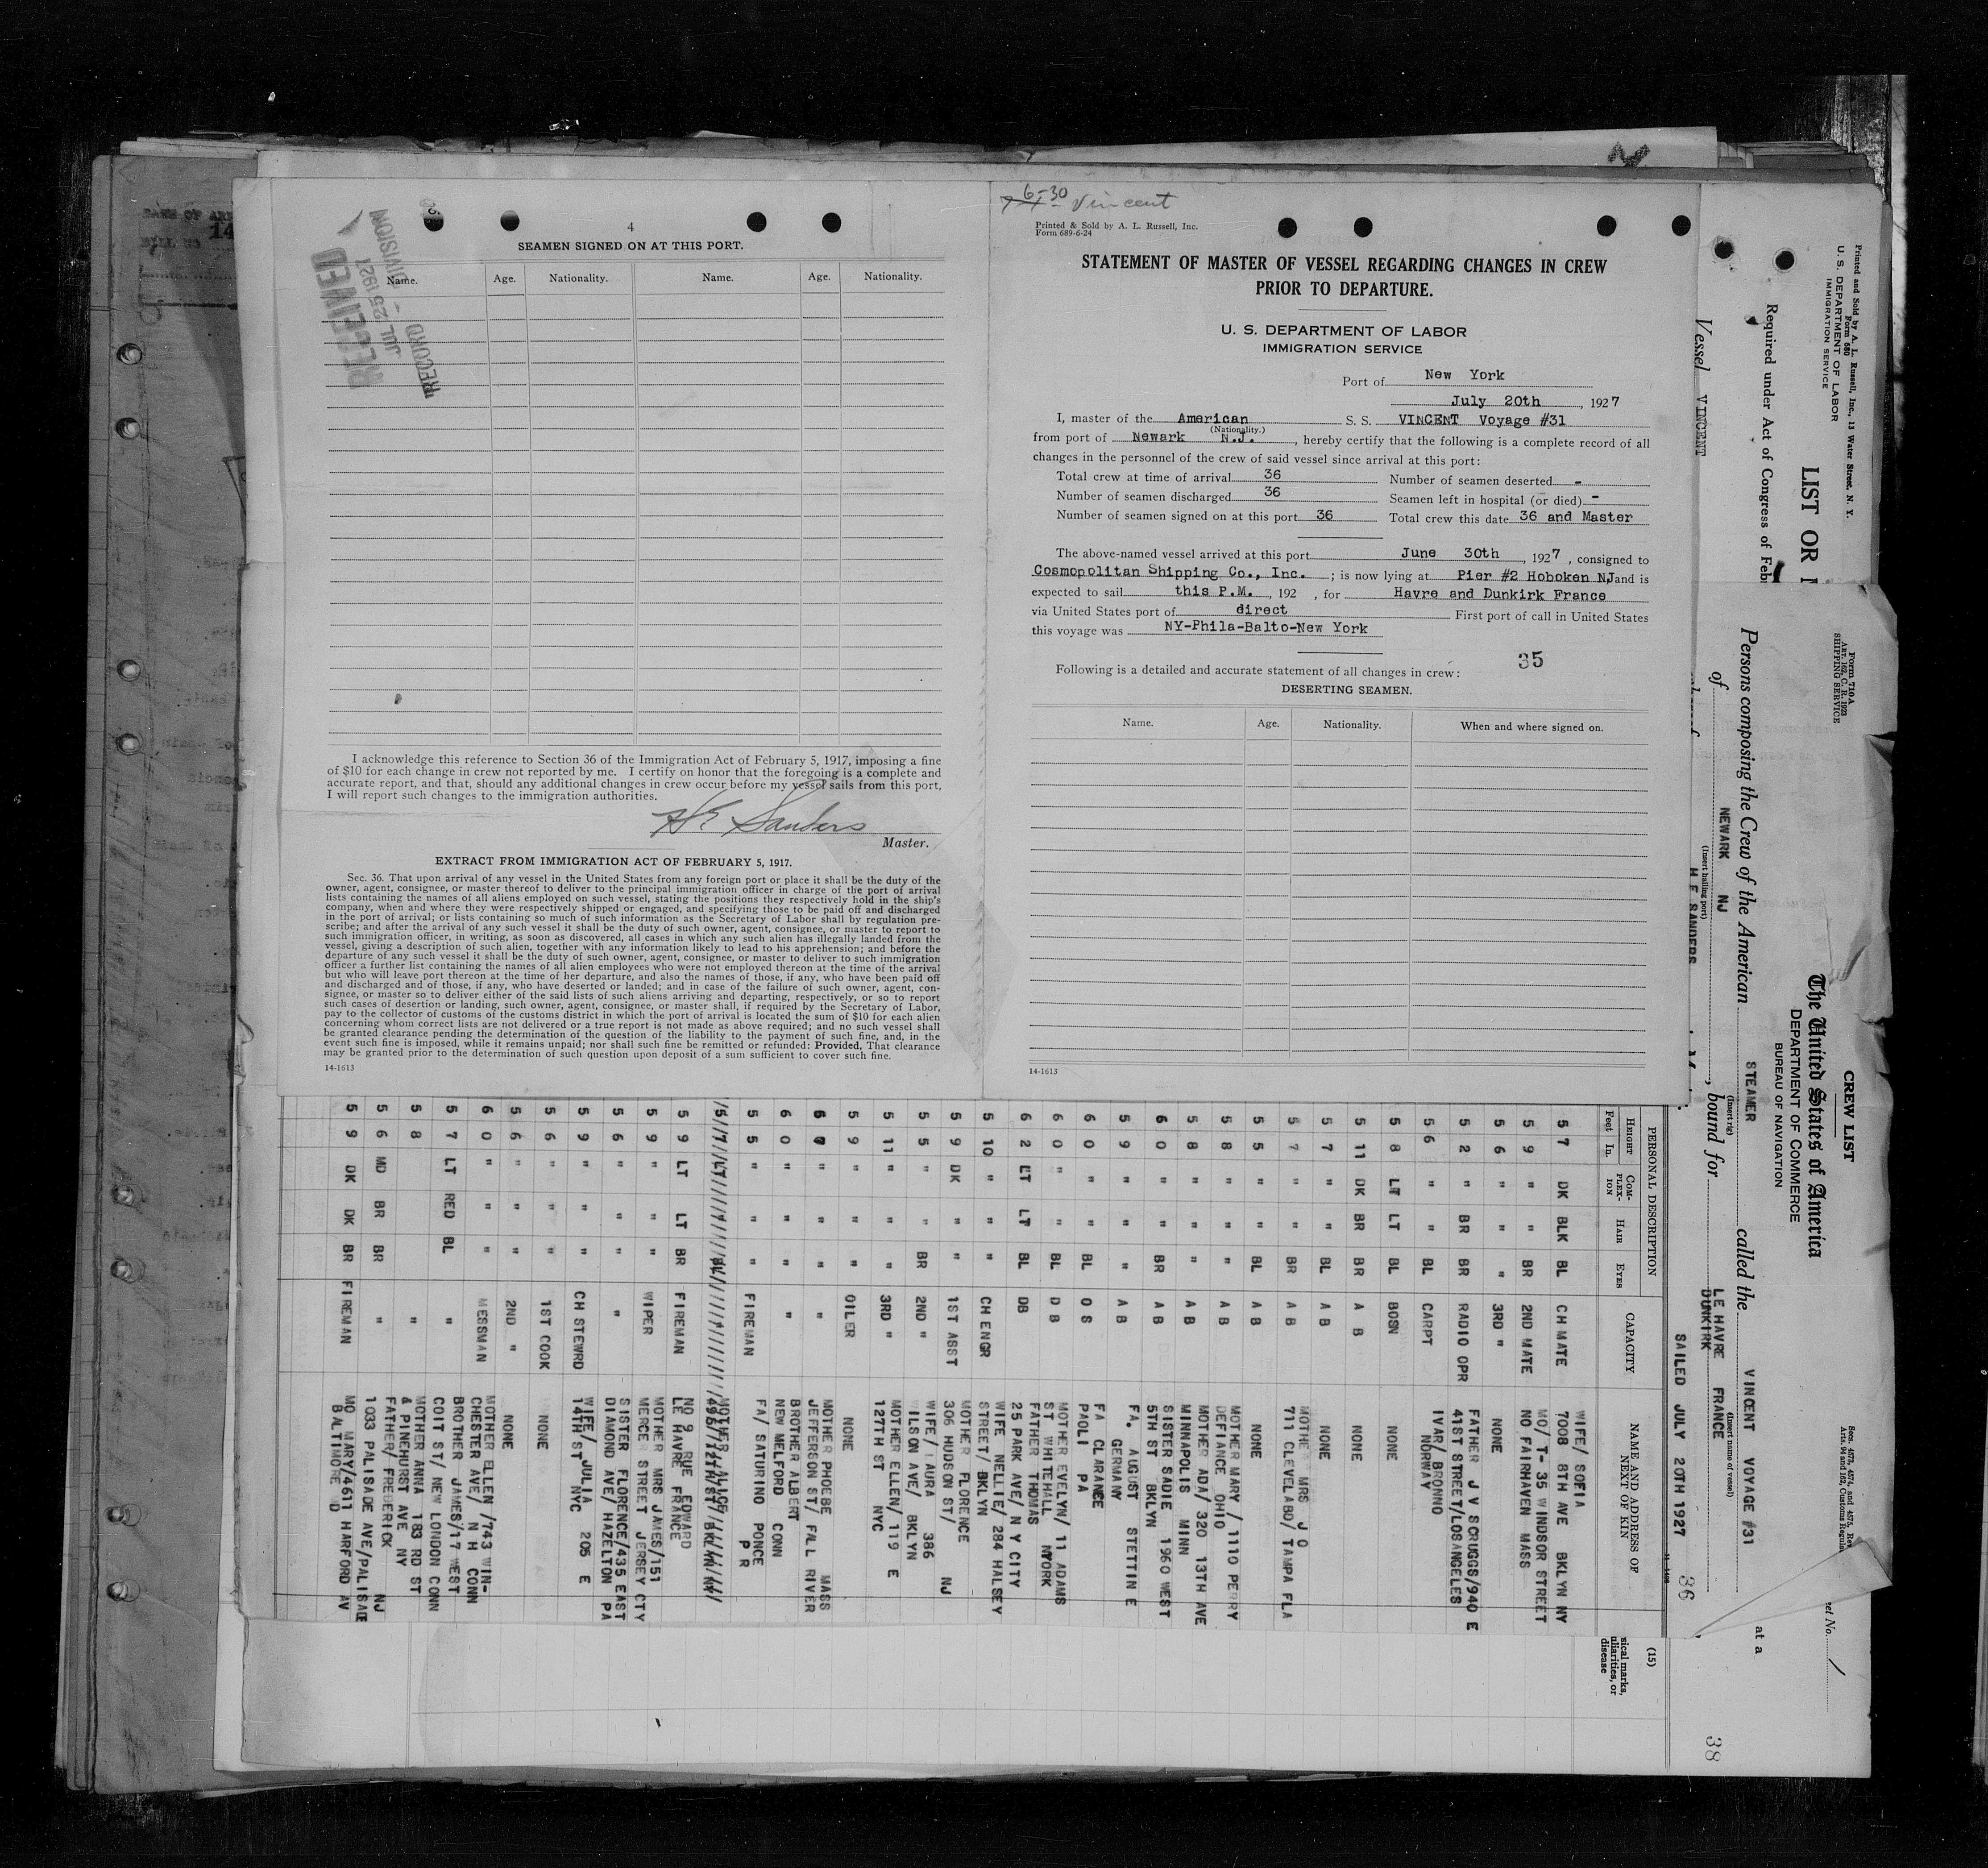 4
SEAMEN SIGNED ON AT THIS PORT.
Name. Age. Nationality. Name. Age. Nationality.
RECEIVED
JUL 25 1927
RECORD DIVISION
I acknowledge this reference to Section 36 of the Immigration Act of February 5, 1917, imposing a fine
of $10 for each change in crew not reported by me. I certify on honor that the foregoing is a complete and
accurate report, and that, should any additional changes in crew occur before my vessel sails from this port,
I will report such changes to the immigration authorities.
H E Sanders
Master.
EXTRACT FROM IMMIGRATION ACT OF FEBRUARY 5, 1917.
Sec. 36. That upon arrival of any vessel in the United States from any foreign port or place it shall be the duty of the
owner, agent, consignee, or master thereof to deliver to the principal immigration officer in charge of the port of arrival
lists containing the names of all aliens employed on such vessel, stating the positions they respectively hold in the ship's
company, when and where they were respectively shipped or engaged, and specifying those to be paid off and discharged
in the port of arrival; or lists containing so much of such information as the Secretary of Labor shall by regulation pre-
scribe; and after the arrival of any such vessel it shall be the duty of such owner, agent, consignee, or master to report to
such immigration officer, in writing, as soon as discovered, all cases in which any such alien has illegally landed from the
vessel, giving a description of such alien, together with any information likely to lead to his apprehension; and before the
departure of any such vessel it shall be the duty of such owner, agent, consignee, or master to deliver to such immigration
officer a further list containing the names of all alien employees who were not employed thereon at the time of the arrival
but who will leave port thereon at the time of her departure, and also the names of those, if any, who have been paid off
and discharged and of those, if any, who have deserted or landed; and in case of the failure of such owner, agent, con-
signee, or master so to deliver either of the said lists of such aliens arriving and departing, respectively, or so to report
such cases of desertion or landing, such owner, agent, consignee, or master shall, if required by the Secretary of Labor,
pay to the collector of customs of the customs district in which the port of arrival is located the sum of $10 for each alien
concerning whom correct lists are not delivered or a true report is not made as above required; and no such vessel shall
be granted clearance pending the determination of the question of the liability to the payment of such fine, and, in the
event such fine is imposed, while it remains unpaid; nor shall such fine be remitted or refunded: Provided, That clearance
may be granted prior to the determination of such question upon deposit of a sum sufficient to cover such fine.
14-1613
6-30 Vincent
Printed & Sold by A. L. Russell, Inc.
Form 689-6-24
STATEMENT OF MASTER OF VESSEL REGARDING CHANGES IN CREW
PRIOR TO DEPARTURE.
U. S. DEPARTMENT OF LABOR
IMMIGRATION SERVICE
Port of New York
July 20th, 1927
I, master of the American S. S. VINCENT Voyage #31
(Nationality.)
from port of Newark N.J., hereby certify that the following is a complete record of all
changes in the personnel of the crew of said vessel since arrival at this port:
Total crew at time of arrival 36 Number of seamen deserted -
Number of seamen discharged 36 Seamen left in hospital (or died) -
Number of seamen signed on at this port 36 Total crew this date 36 and Master
The above-named vessel arrived at this port June 30th, 1927, consigned to
Cosmopolitan Shipping Co., Inc. ; is now lying at Pier #2 Hoboken NJ and is
expected to sail this P.M., 192 , for Havre and Dunkirk France
via United States port of direct First port of call in United States
this voyage was NY-Phila-Balto-New York
35
Following is a detailed and accurate statement of all changes in crew:
DESERTING SEAMEN.
Name. Age. Nationality. When and where signed on.
14-1613
Printed and Sold by A. L. Russell, Inc., 13 Water Street, N. Y.
Form 680
U. S. DEPARTMENT OF LABOR
IMMIGRATION SERVICE
LIST OR
Required under Act of Congress of Feb
Vessel VINCENT
Form 710A
Art. 162, C. R. 1923
SHIPPING SERVICE
CREW LIST
The United States of America
DEPARTMENT OF COMMERCE
BUREAU OF NAVIGATION
Secs. 4573, 4574, and 4575, Rev
Arts. 94 and 162, Customs Regula
Persons composing the Crew of the American STEAMER called the VINCENT VOYAGE #31
(Insert rig) (Insert name of vessel)
of NEWARK NJ, bound for LE HAVRE FRANCE
DUNKIRK
(Insert hailing port)
H E SANDERS
SAILED JULY 20TH 1927
36
38
at a
PERSONAL DESCRIPTION CAPACITY NAME AND ADDRESS OF NEXT OF KIN
HEIGHT Feet In. COM-PLEX-ION HAIR EYES
(15)
sical marks,
uliarities, or
disease
5 7 DK BLK BL CH MATE WIFE/ SOFIA
7008 8TH AVE BKLYN NY
5 9 " " BR 2ND MATE MO/ T- 35 WINDSOR STREET
NO FAIRHAVEN MASS
5 6 " " " 3RD " NONE
5 2 " BR BR RADIO OPR FATHER J V SCRUGGS/940 E
41ST STREET/LOSANGELES
5 6 " " BL CARPT IVAR/ BRONNO
NORWAY
5 8 LT LT BL BOSN NONE
5 11 DK BR BR A B NONE
5 7 " " BL A B NONE
5 7 " " BR A B MOTHE MRS J O
711 CLEVELABD/ TAMPA FLA
5 5 " " BL A B NONE
5 8 " " " A B MOTHER MARY / 1110 PERRY
DEFIANCE OHIO
5 8 " " " A B MOTHER ADA/ 320 13TH AVE
MINNAPOLIS MINN
6 0 " " BR A B SISTER SADIE 1960 WEST
5TH ST BKLYN
5 9 " " " A B FA. AUGUST STETTIN E
GERMANY
6 0 " " BL O S FA CLARANCE
PAOLI PA
6 0 " " BL D B MOTHER EVELYN/ 11 ADAMS
ST WHITEHALL NYORK
6 2 LT LT BL DB FATHER THOMAS
25 PARK AVE/ N Y CITY
5 10 " " " CH ENGR WIFE NELLIE/ 284 HALSEY
STREET/ BKLYN
5 9 DK " " 1ST ASST MOTHER FLORENCE
306 HUDSON ST/ NJ
5 5 " " BR 2ND " WIFE/ LAURA 386
WILSON AVE/ BKLYN
5 11 " " " 3RD " MOTHER ELLEN/ 119 E
127TH ST NYC
5 9 " " " OILER NONE
" " " " MOTHER PHOEBE
JEFFERSON ST/ FALL RIVER MASS
6 0 " " " " BROTHER ALBERT
NEW MELFORD CONN
5 5 " " " FIREMAN FA/ SATURINO PONCE
P R
5 9 LT LT BR FIREMAN NO 9 RUE EDWARD
LE HAVRE FRANCE
5 9 " " " WIPER MOTHER MRS JAMES/151
MERCER STREET JERSEY CTY
5 6 " " " SISTER FLORENCE/435 EAST
DIAMOND AVE/ HAZELTON PA
5 9 " " CH STEWRD WIFE/ JULIA 205 E
14TH ST NYC
5 6 " " 1ST COOK NONE
5 6 " " " 2ND " NONE
6 0 " " " MESSMAN MOTHER ELLEN /743 WIN-
CHESTER AVE/ N H CONN
5 7 LT RED BL " BROTHER JAMES/17 WEST
COIT ST/ NEW LONDON CONN
5 8 " MOTHER ANNA 183 RD ST
& PINEHURST AVE NY
5 6 MD BR BR " FATHER/ FREDERICK
1033 PALISADE AVE/PALISADE NJ
5 9 DK DK BR FIREMAN MO MARY/4611 HARFORD AV
BALTIMORE